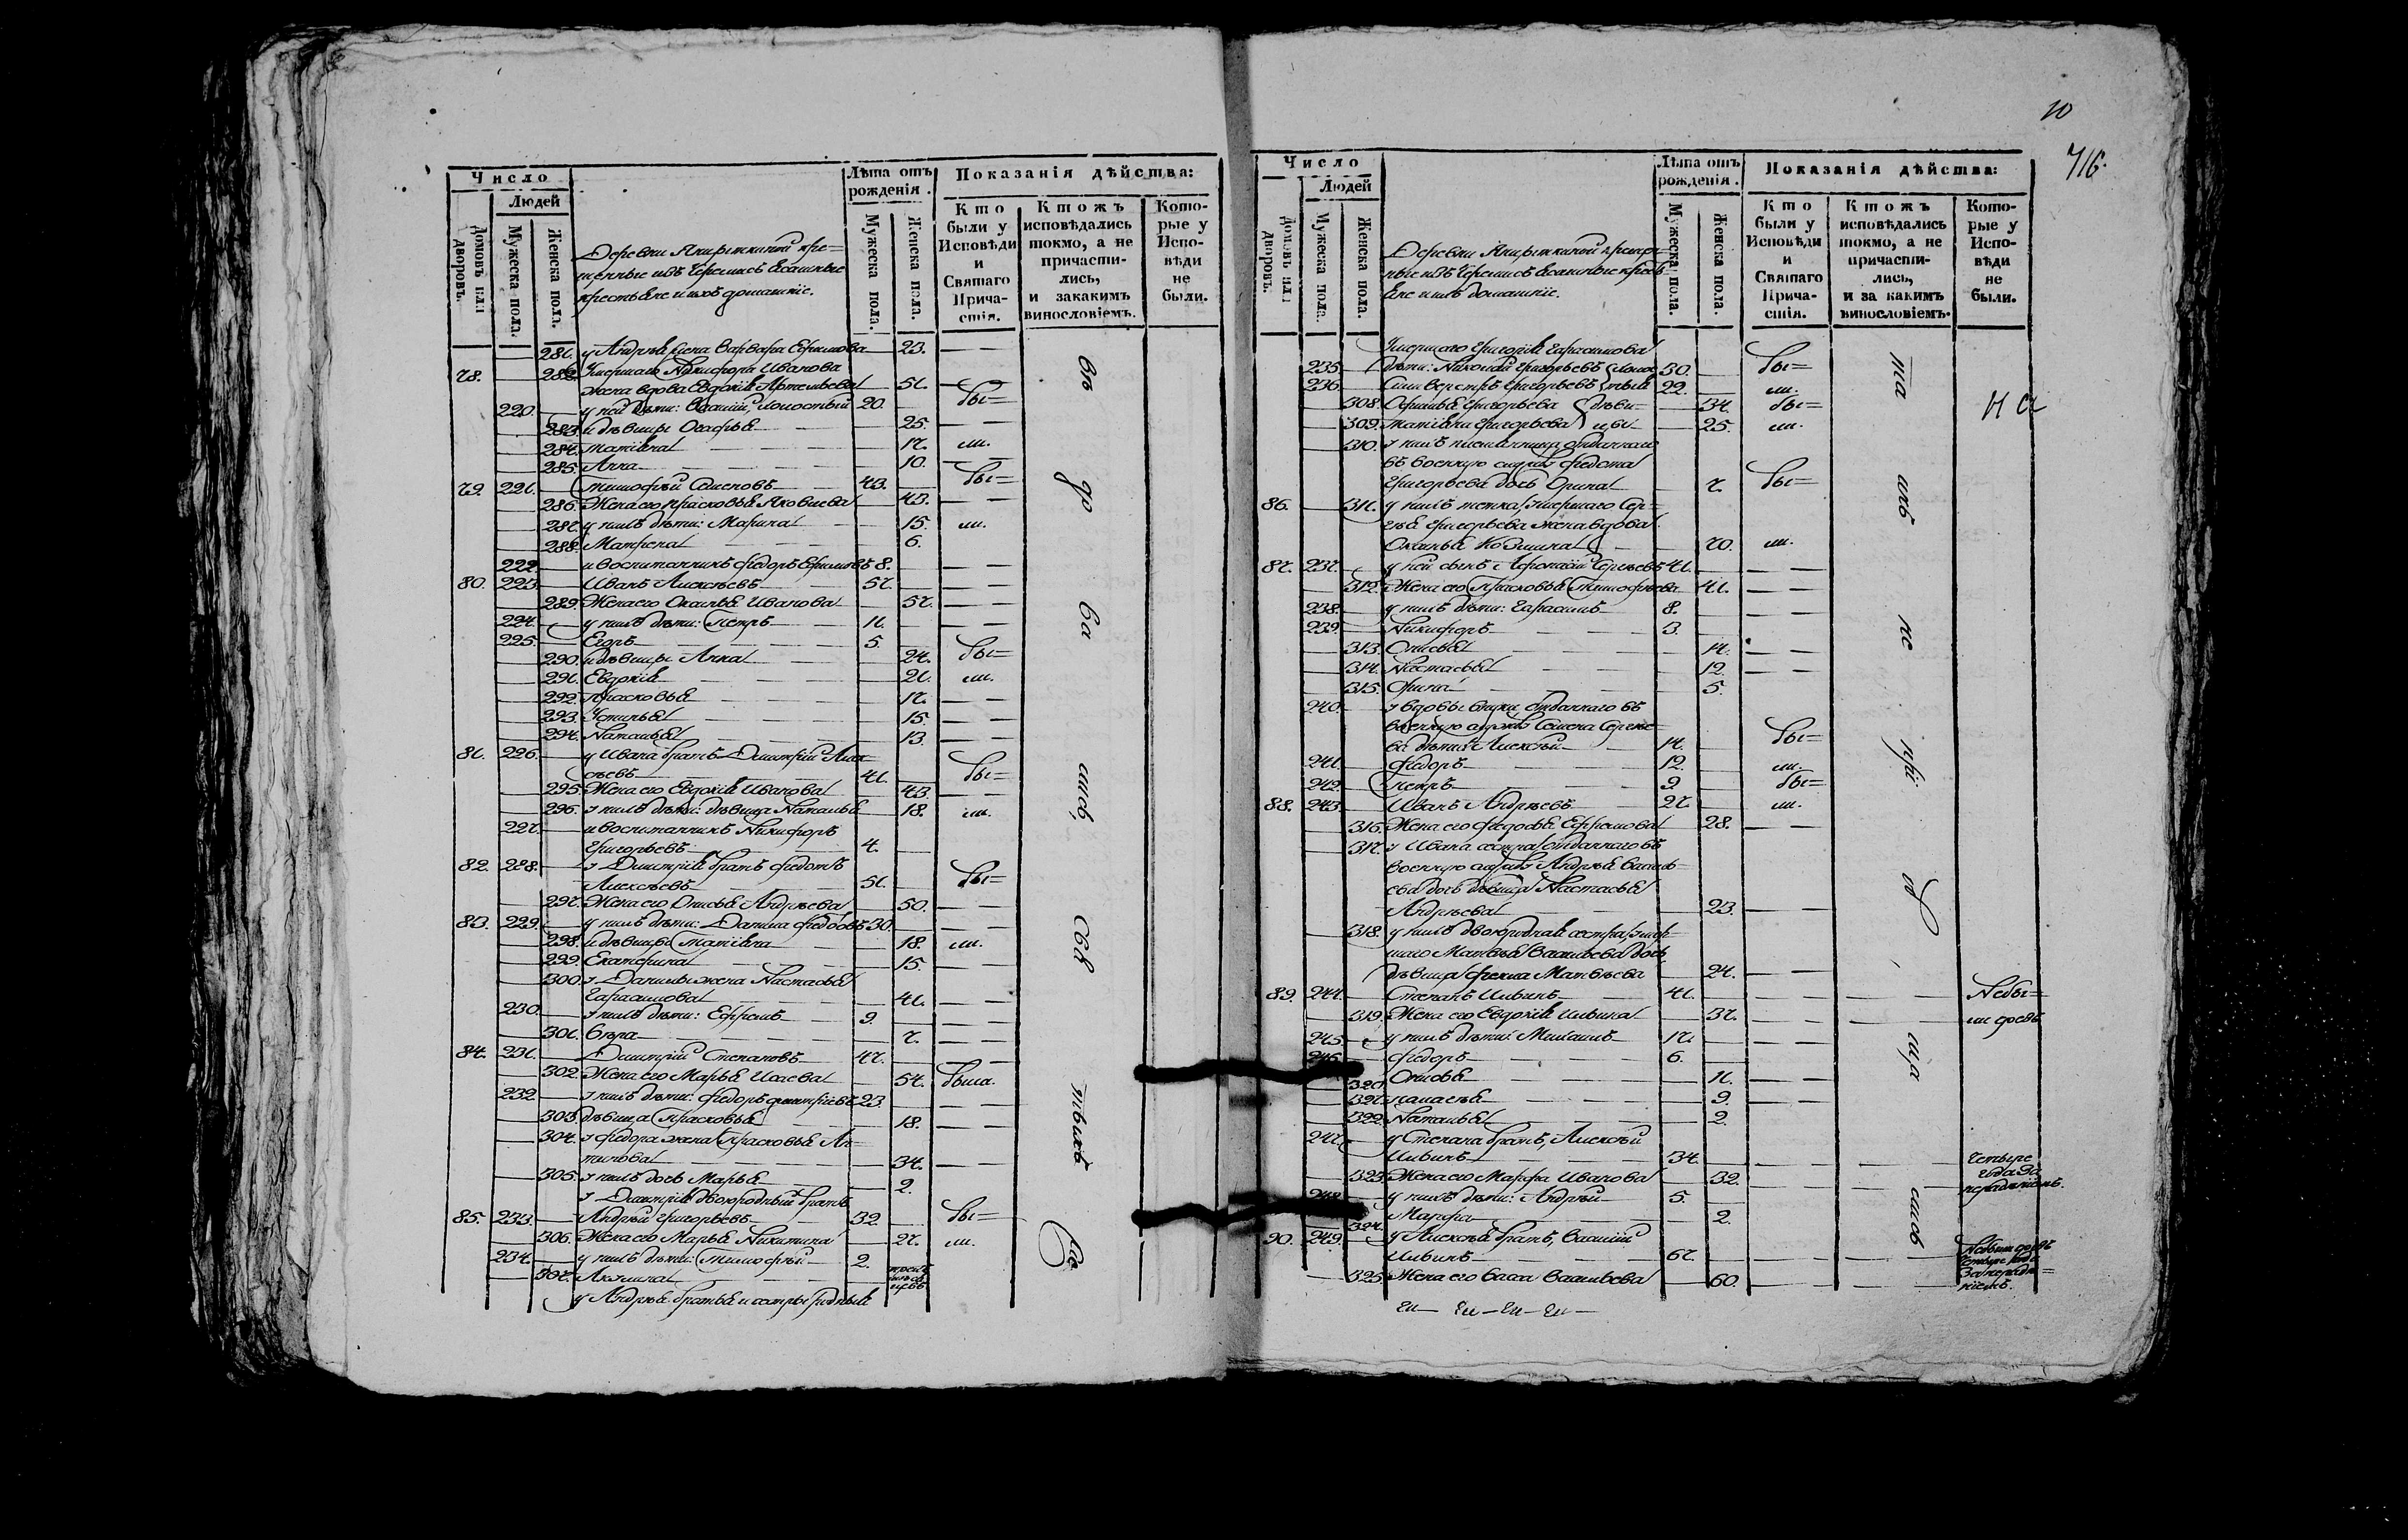 Число
Людей
Лѣта отъ рожденія.
Показанія дѣйства:
Домовъ или дворовъ.
Мужеска пола.
Женска пола.
Мужеска пола.
Женска пола.
Кто были у Исповѣди и Святаго Прича-стія.
Ктожъ исповѣдались токмо, а не причасти-лись, и закакимъ винословіемъ.
Кото-рые у Испо-вѣди не были.
Деревни кре=
щенные изъ Черемисъ Ясашные
крестьяне и ихъ домашніе.
281. у Андрѣя жена Варвара Ефимова 23.
78. 282. Умершаго Никифора Иванова
жена вдова Евдокія Артемьева 51.
220. у ней дѣти: Василій, холостый 20. бы=
283. и дѣвицы Агафья 25.
284. Татіяна 17. ли.
285. Анна 10.
79. 221. Тимофѣй Семеновъ 43. бы=
286. Жена его Прасковья Яковлева 43.
287. у нихъ дѣти: Марина 15. ли.
288. Матрена 6.
222. и воспитанникъ Федоръ Ефимовъ 8.
80. 223. Иванъ Алексѣевъ 57.
289. Жена его Оксинья Иванова 57.
224. у нихъ дѣти: Петръ 11.
225. Егоръ 5.
290. и дѣвицы Анна 24. бы=
291. Евдокія 21. ли.
292. Прасковья 17.
293. Устинья 15.
294. Наталья 13.
81. 226. у Ивана братъ Дмитрій Алек=
сѣевъ 41. бы=
295. Жена его Евдокія Иванова 43.
296. у нихъ дѣти: дѣвица Наталья 18. ли.
227. и воспитанникъ Никифоръ
Григорьевъ 4.
82. 228. у Дмитрія братъ Федотъ
Алексѣевъ 51. бы=
297. Жена его Онисья Андрѣева 50.
83. 229. у нихъ дѣти: Данила Федотовъ 30.
298. и дѣвицы Татіяна 18. ли.
299. Екатерина 15.
300. у Данилы жена Настасья
Гарасимова 41.
230. у нихъ дѣти: Ефремъ 9.
301. Вѣра 7.
84. 231. Дмитрій Степановъ 47.
302. Жена его Марья Исаева 54. была.
232. у нихъ дѣти: Федоръ Дмитріевъ 23.
303. дѣвица Прасковья 18.
304. у Федора жена Прасковья Ан=
типова 34.
305. у нихъ дочь Марья 2.
у Дмитрія двоюродный братъ
85. 233. Андрей Григорьевъ 32. бы=
306. Жена его Марья Никитина 27. ли.
234. у нихъ дѣти: Тимофѣй 2.
307. Акулина
у Андрѣя братья и сестры родныя
10
716.
Число
Людей
Лѣта отъ рожденія.
Показанія дѣйства:
Домовъ или дворовъ.
Мужеска пола.
Женска пола.
Мужеска пола.
Женска пола.
Кто были у Исповѣди и Святаго Прича-стія.
Ктожъ исповѣдались токмо, а не причасти-лись, и за какимъ винословіемъ.
Кото-рые у Испо-вѣди не были.
Умершаго Григорія Гарасимова
235. дѣти: Николай Григорьевъ холос 30. бы=
236. Сильверстръ Григорьевъ тыя 22. ли.
308. Офимья Григорьева дѣви= 34. бы=
309. Татіяна Григорьева цы 25. ли.
310. у нихъ племянница отданнаго
въ военную службу Федота
Григорьева дочь Орина 7. бы=
86. 311. у нихъ тетка умершаго Сер=
гѣя Григорьева жена вдова
Оксинья Козмина 70. ли.
87. 237. у ней сынъ Афонасій Сергѣевъ 41.
312. Жена его Прасковья Тимофѣева 41.
238. у нихъ дѣти: Гарасимъ 8.
239. Никифоръ 3.
313. Онисья 14.
314. Настасья 12.
315. Фима 5.
240. у вдовы внуки отданнаго въ
военную службу Семена Сергѣе=
ва дѣти Алексѣй 14. бы=
241. Федоръ 12. ли.
242. Петръ 9 бы=
88. 243. Иванъ Андрѣевъ 27. ли.
316. Жена его Федосья Ефремова 28.
317. у Ивана сестра отданнаго въ
военную службу Андрѣя Василь=
ева дочь дѣвица Настасья
Андрѣева 23.
318. у нихъ двоюродная сестра умер=
шаго Матвѣя Васильева дочь
дѣвица Фекла Матвѣева 24.
89. 244. Степанъ Ильинъ 41. Небы=
319. Жена его Евдокія Ильина 37.
245. у нихъ дѣти: Михаилъ 17.
246. Федоръ 6.
320. Онисья 11.
321. Палагѣя 9.
322. Наталья 2.
247. у Степана братъ, Алексѣй
Ильинъ 34. Четыре
323. Жена его Марфа Иванова 32. года за
248. у нихъ дѣти: Андрѣй 5. нерадѣніемъ.
324. Марфа 2.
90. 249. у Алексѣя братъ, Василій
Ильинъ 67.
325. Жена его Васса Васильева 60.